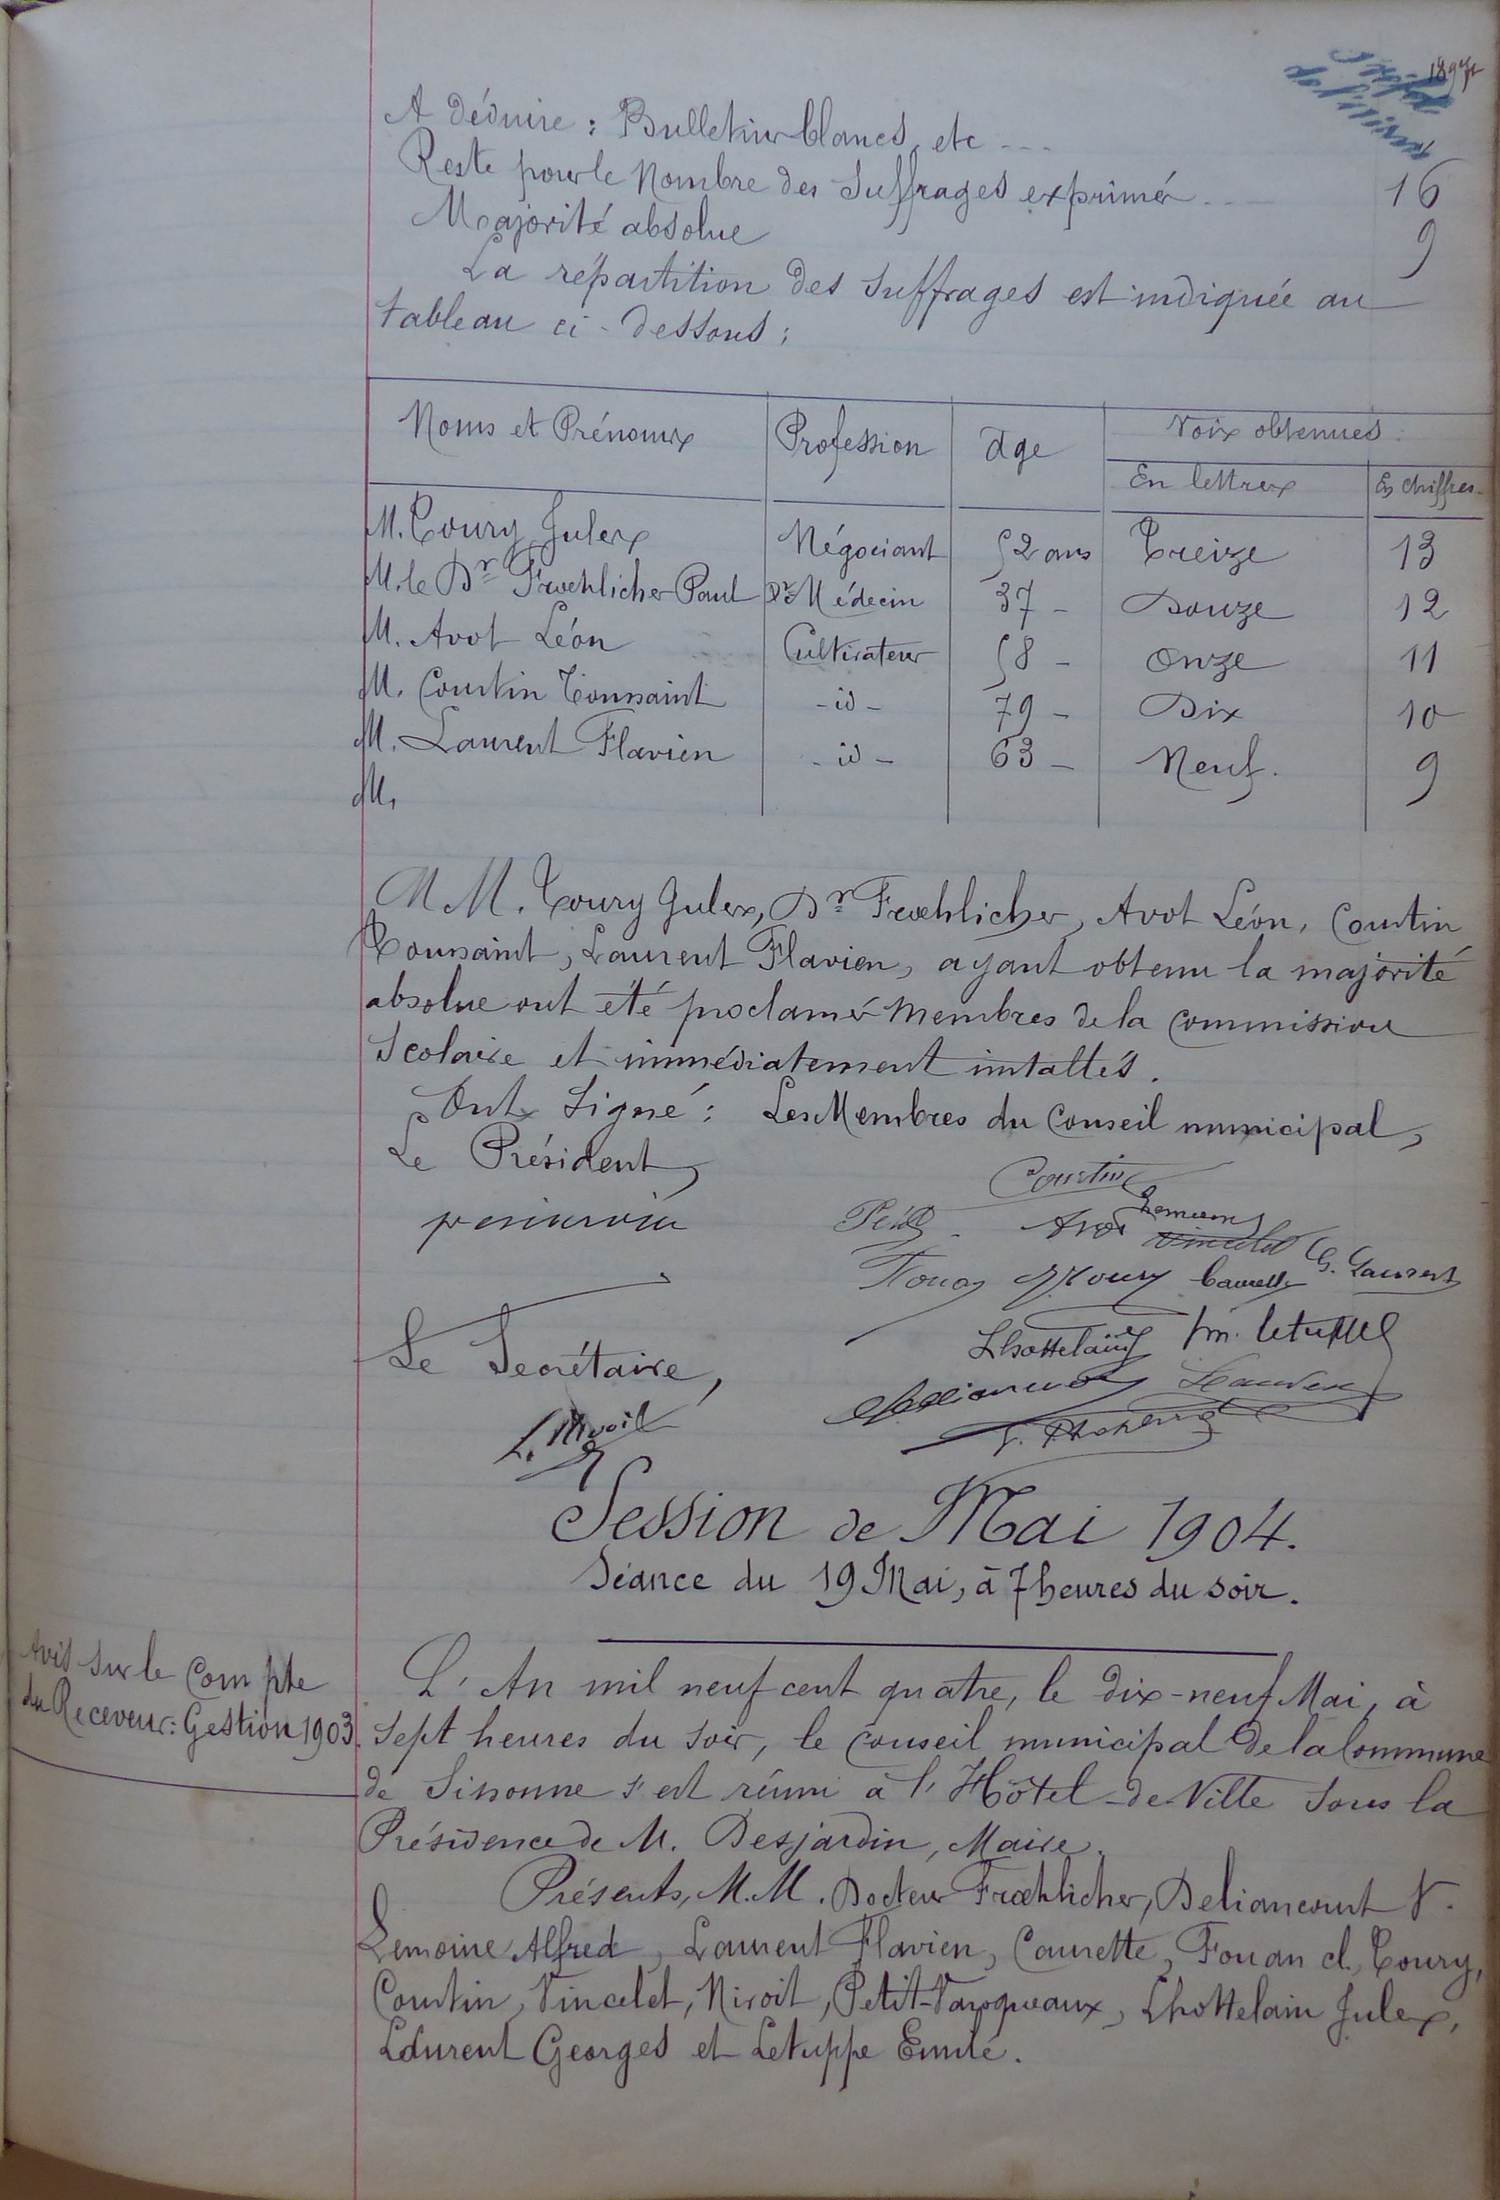 A Déduire : Bulletins blancs, etc ...
Reste pour le Nombre des Suffrages exprimés ... 16
Majorité absolue 9
La répartition des Suffrages est indiquée au
tableau ci-dessous ;
Noms et Prénoms Profession Age Voix obtenues
En lettres En chiffres
M. Toury Jules Négociant 52 ans Treize 13
M. le Dr Froehlicher Paul Dr Médecin 37 - Douze 12
M. Avot Léon Cultivateur 58 - Onze 11
M. Courtin Toussaint - id - 79 - Dix 10
M. Laurent Flavien - id - 63 - Neuf. 9
M.
MM. Toury Jules, Dr Froehlicher, Avot Léon, Courtin
Toussaint, Laurent Flavien, ayant obtenu la majorité
absolue ont été proclamés Membres de la Commission
Scolaire et immédiatement intallés.
Ont Signé : Les Membres du Conseil municipal,
Le Président,
Courtin
Petit Avot
Vincelet G. Laurent
Fouan Toury Caurette
Lhottelain Em. Letuppe
Le Secrétaire,
Session de Mai 1904.
Séance du 19 Mai, à 7 heures du soir.
Avis sur le Compte
du Receveur : Gestion 1903.
L'An mil neuf cent quatre, le dix-neuf Mai, à
sept heures du soir, le Conseil municipal de la Commune
de Sissonne s'est réuni à l'Hôtel-de-Ville sous la
Présidence de M. Desjardin, Maire.
Présents, M.M. Docteur Froehlicher, Deliancourt V.
Lemoine Alfred, Laurent Flavien, Caurette, Fouan cl, Toury,
Courtin, Vincelet, Niroit, Petit-Varoqueaux, Lhottelain Jules,
Laurent Georges et Letuppe Emile.